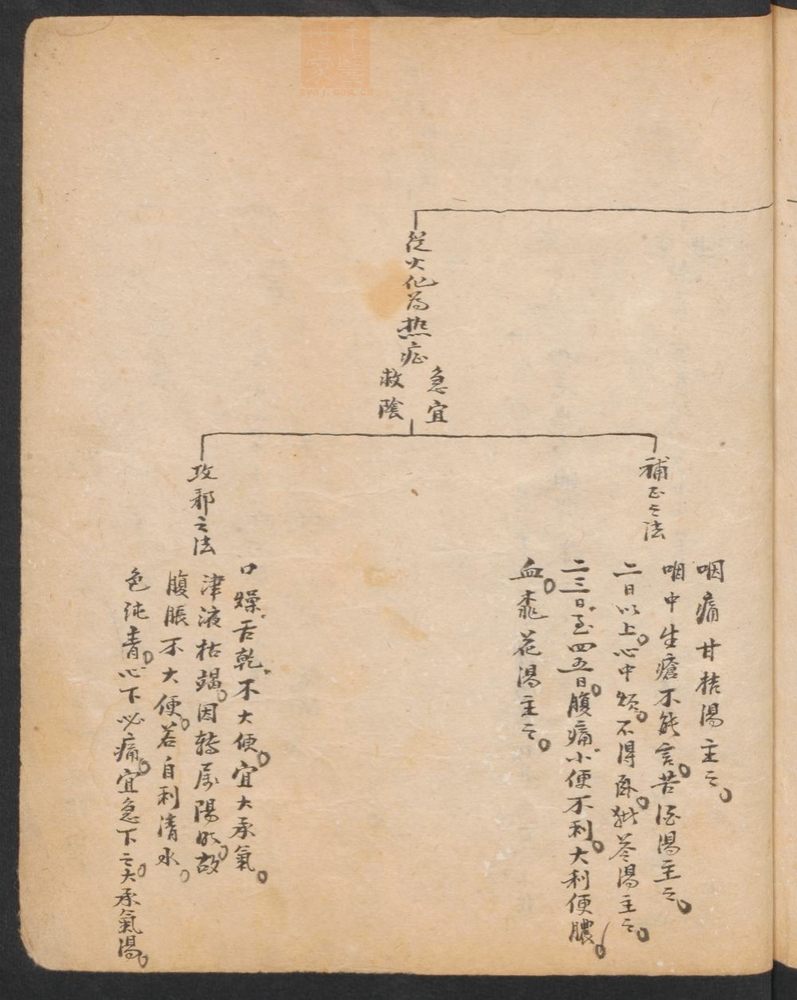 從火化為热症
急宜
救陰
補正之法
咽痛甘桔湯主之。
咽中生瘡不能言。苦酒湯主之。
二日以上。心中烦。不得卧。猪苓湯主之。
二三日。至四五日。腹痛。小便不利。大利便膿
血。桃花湯主之。
攻邪之法
口燥。舌乾。不大便。宜大承氣。
津液枯竭。因轉属陽明。故
腹脹不大便。若自利清水。
色純青。心下必痛。宜急下之。大承氣湯。